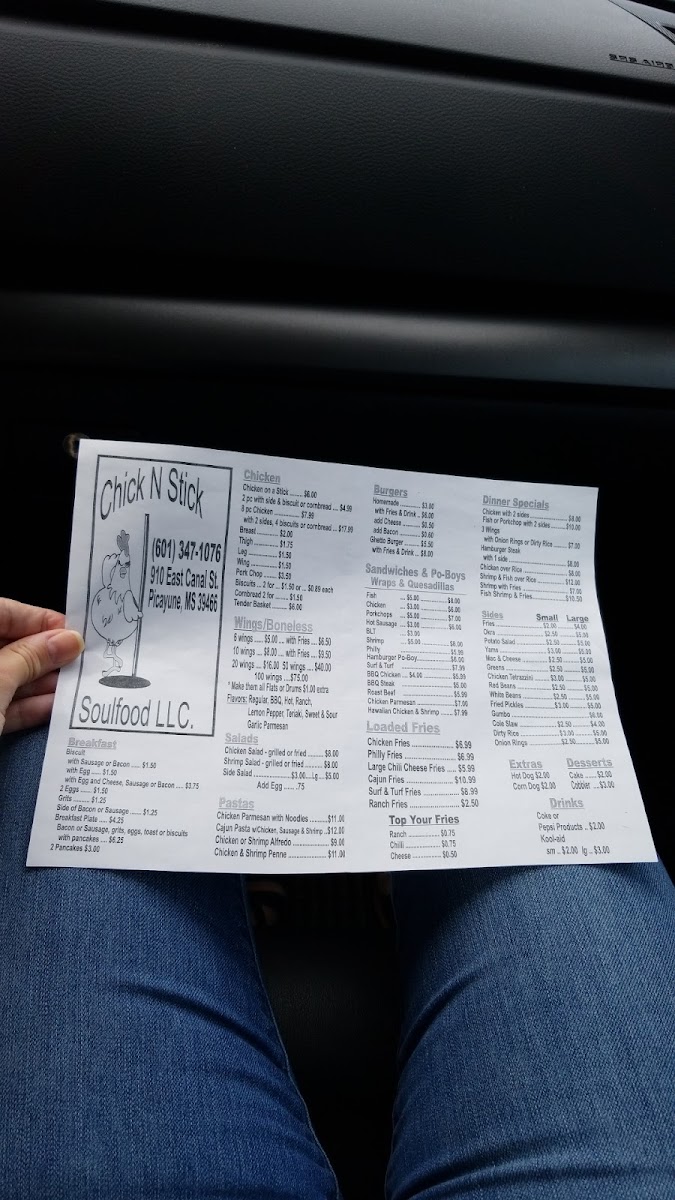 Chick N Stick
(601) 347-1076
910 East Canal St.
Picayune, MS 39466
Soulfood LLC.
Breakfast
Biscuit
with Sausage or Bacon .... $1.50
with Egg ..... $1.50
with Egg and Cheese, Sausage or Bacon .... $3.75
2 Eggs ...... $1.50
Grits ......... $1.25
Side of Bacon or Sausage ....... $1.25
Breakfast Plate ..... $4.25
Bacon or Sausage, grits, eggs, toast or biscuits
with pancakes .... $6.25
2 Pancakes $3.00
Chicken
Chicken on a Stick ........ $6.00
2 pc with side & biscuit or cornbread .... $4.99
8 pc Chicken ............ $7.99
with 2 sides, 4 biscuits or cornbread ... $17.99
Breast ............ $2.00
Thigh ............. $1.75
Leg ............... $1.50
Wing .............. $1.50
Pork Chop ........ $3.50
Biscuits ... 2 for ... $1.50 or ... $0.89 each
Cornbread 2 for ........ $1.50
Tender Basket ......... $6.00
Wings/Boneless
6 wings ..... $5.00 ... with Fries ... $6.50
10 wings ... $8.00 ... with Fries ... $9.50
20 wings ... $16.00 50 wings .... $40.00
100 wings ....$75.00
* Make them all Flats or Drums $1.00 extra
Flavors: Regular, BBQ, Hot, Ranch,
Lemon Pepper, Teriaki, Sweet & Sour
Garlic Parmesan
Salads
Chicken Salad - grilled or fried ......... $8.00
Shrimp Salad - grilled or fried .......... $8.00
Side Salad ................$3.00....Lg.....$5.00
Add Egg ...... .75
Pastas
Chicken Parmesan with Noodles ..........$11.00
Cajun Pasta w/Chicken, Sausage & Shrimp ..$12.00
Chicken or Shrimp Alfredo ................. $9.00
Chicken & Shrimp Penne ................. $11.00
Burgers
Homemade ............. $3.00
with Fries & Drink ... $6.00
add Cheese ........... $0.50
add Bacon ............ $0.60
Ghetto Burger ........ $5.50
with Fries & Drink ... $8.00
Sandwiches & Po-Boys
Wraps & Quesadillas
Fish ........ $5.00 ............ $8.00
Chicken ..... $3.00 ............ $6.00
Porkchops ... $5.00 ............ $7.00
Hot Sausage .. $3.00 ........... $6.00
BLT ......... $3.00
Shrimp ...... $5.00 ............ $6.00
Philly ......................... $5.99
Hamburger Po-Boy................ $6.00
Surf & Turf .................... $7.99
BBQ Chicken .... $4.00 ......... $5.00
BBQ Steak ...................... $5.00
Roast Beef ..................... $5.99
Chicken Parmesan ............... $7.00
Hawaiian Chicken & Shrimp ...... $7.99
Loaded Fries
Chicken Fries ................. $6.99
Philly Fries .................. $6.99
Large Chili Cheese Fries .... $5.99
Cajun Fries .................. $10.99
Surf & Turf Fries ............. $8.99
Ranch Fries ................... $2.50
Top Your Fries
Ranch ................ $0.75
Chilli ............... $0.75
Cheese ............... $0.50
Dinner Specials
Chicken with 2 sides ................. $8.00
Fish or Porkchop with 2 sides ........ $10.00
3 Wings
with Onion Rings or Dirty Rice ....... $7.00
Hamburger Steak
with 1 side .......................... $8.00
Chicken over Rice .................... $8.00
Shrimp & Fish over Rice .............. $12.00
Shrimp with Fries .................... $7.00
Fish Shrimp & Fries .................. $10.50
Sides Small Large
Fries ............ $2.00 ....... $4.00
Okra ............. $2.50 ....... $5.00
Potato Salad ..... $2.50 ....... $5.00
Yams ............. $3.00 ....... $5.00
Mac & Cheese ..... $2.50 ....... $5.00
Greens ........... $2.50 ....... $5.00
Chicken Tetrazzini .. $3.00 .... $5.00
Red Beans ........ $2.50 ....... $5.00
White Beans ...... $2.50 ....... $5.00
Fried Pickles .... $3.00 ....... $5.00
Gumbo ......................... $6.00
Cole Slaw ........ $2.50 ....... $4.00
Dirty Rice ....... $3.00 ....... $5.00
Onion Rings ...... $2.50 ....... $5.00
Extras
Hot Dog $2.00
Corn Dog $2.00
Desserts
Cake ...... $2.00
Cobbler ....$3.00
Drinks
Coke or
Pepsi Products .. $2.00
Kool-aid
sm .. $2.00 lg .. $3.00